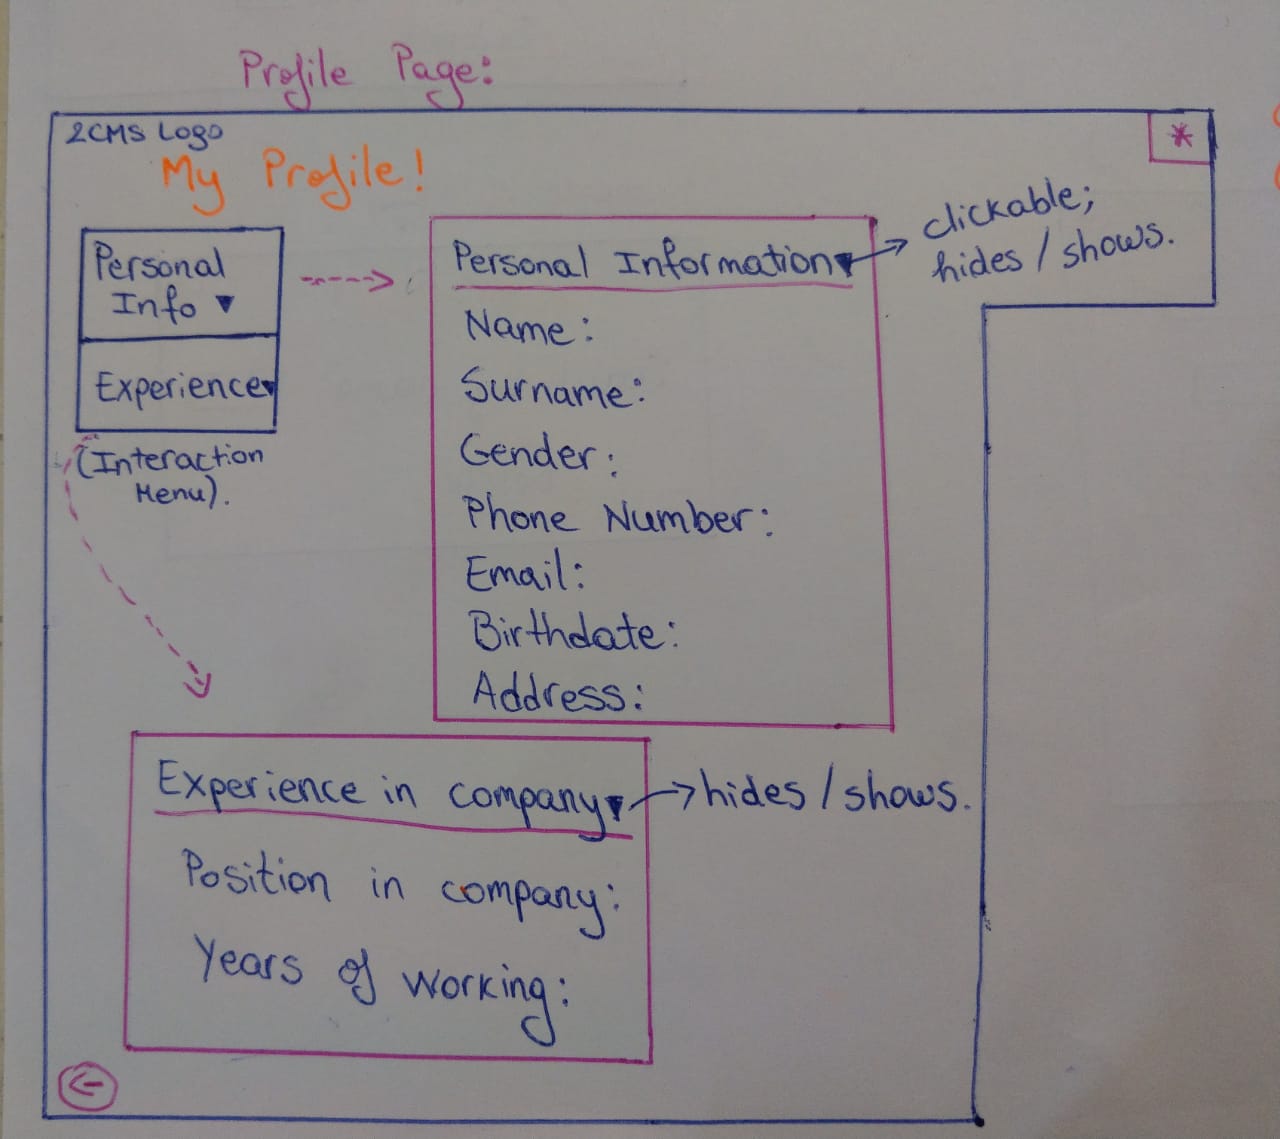 Profile Page:
2CMS Logo
*
My Profile!
Personal
Info ▼
Experience▼
(Interaction
Menu).
Personal Information▼
clickable;
hides / shows.
Name:
Surname:
Gender:
Phone Number:
Email:
Birthdate:
Address:
Experience in company▼
hides / shows.
Position in company:
Years of working: